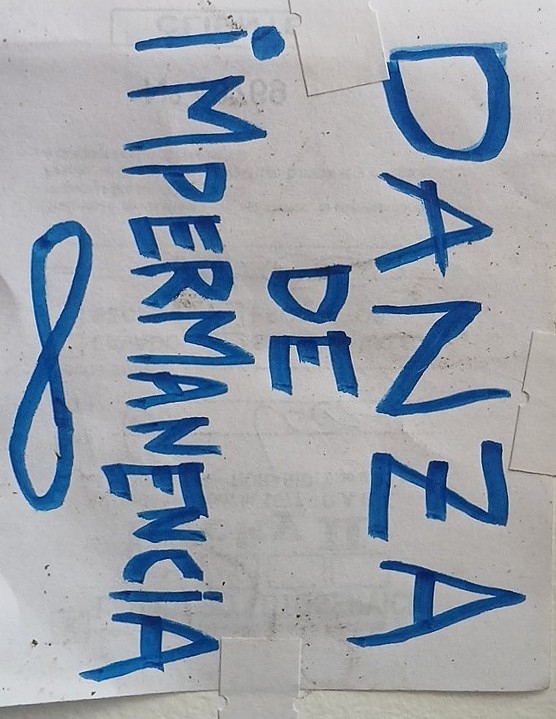 DANZA
DE
iMPERMANENCiA